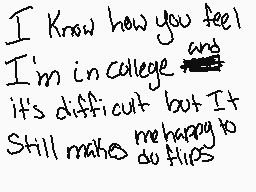 I Know how you feel
I'm in college and
it's difficult but It
Still makes me happy to
do flips